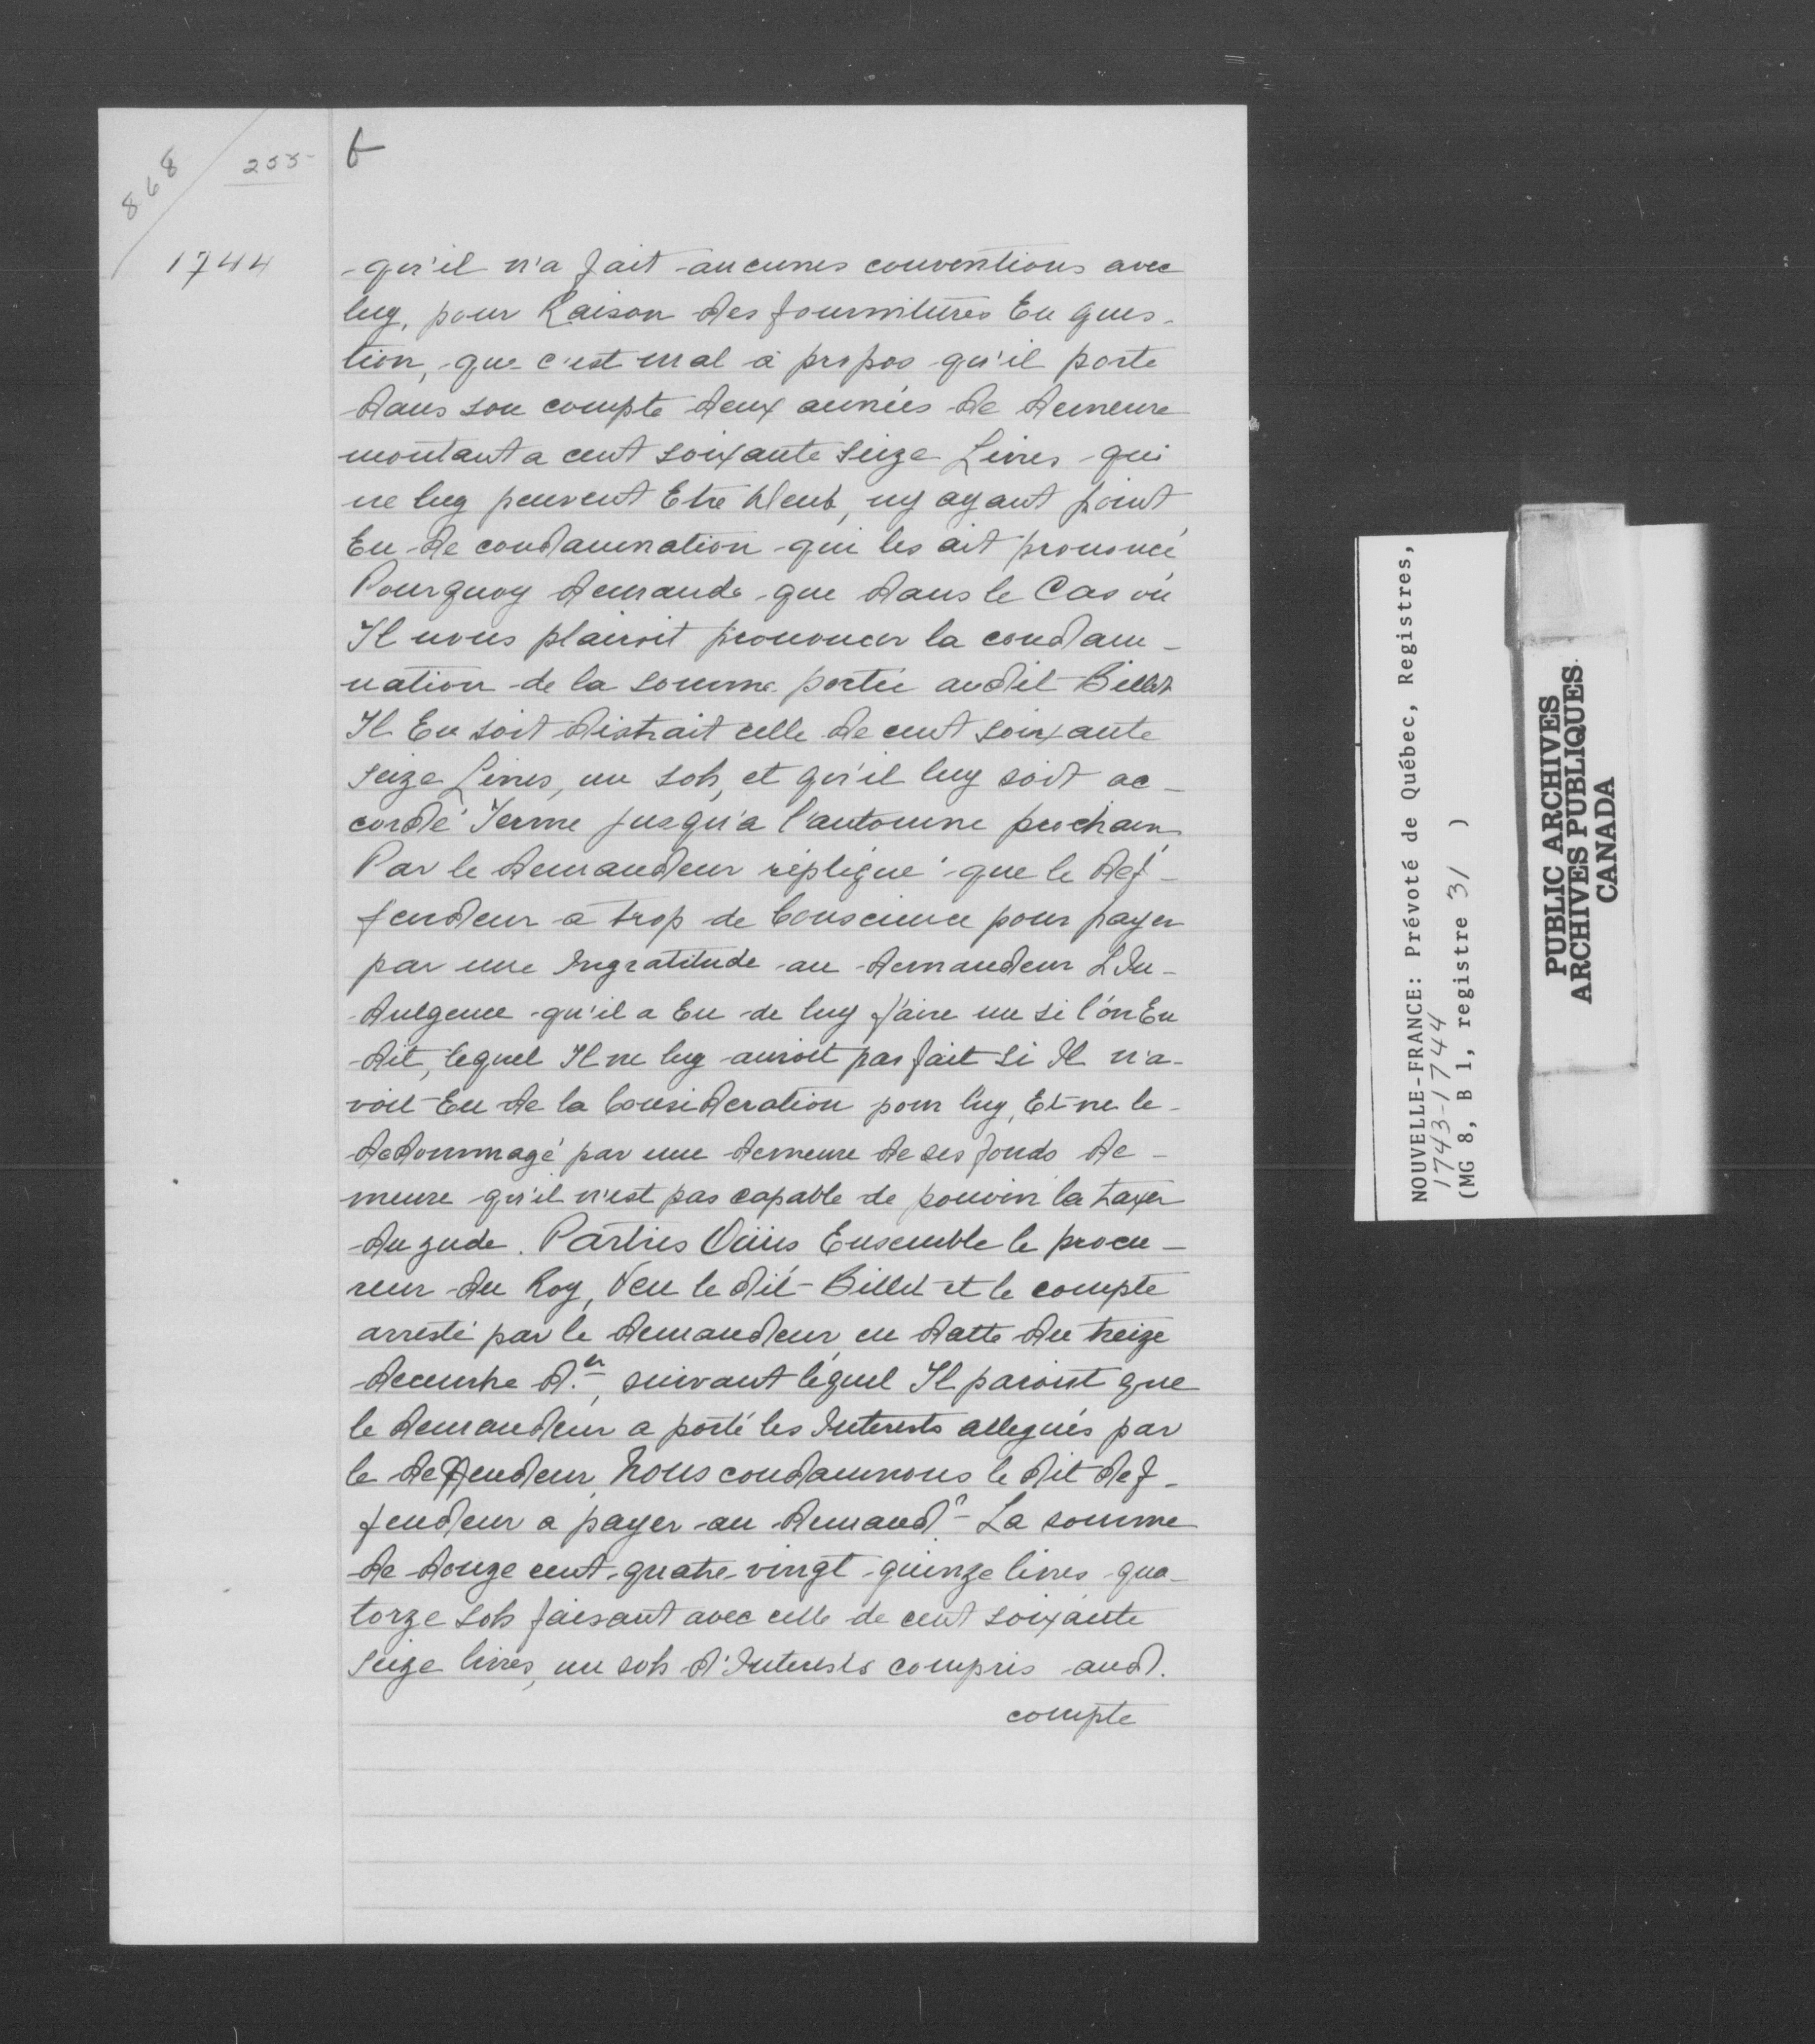 868
255
1744
qu'il n'a fait aucunes conventions avec
luy, pour Raison des fournitures En ques-
tion, que c'est mal à propos qu'il porte
dans son compte deux années de demeure
montant a cent soixante seize Livres qui
ne luy peuvent Etre deub, ny ayant point
Eu de condamnation qui les ait prononcé
Pourquoy demande que dans le Cas où
Il nous plairoit prononcer la condam-
nation de la somme portée audit Billet
Il En soit distrait celle de cent soixante
seize Livres, un sols, et qu'il luy soit ac-
cordé Terme jusqu'a l'automne prochain
Par le demandeur répliqué que le def-
fendeur a trop de Conscience pour payer
par une Ingratitude au demandeur L'In-
dulgence qu'il a Eu de luy faire un si l'on En
dit, lequel Il ne luy auroit pas fait si Il n'a-
voit Eu de la Consideration pour luy, Et ne le
dedommagé par une demeure de ses fonds de-
meure qu'il n'est pas capable de pouvoir la taxer
du zude. Parties Ouïes Ensemble le procu-
reur du Roy, Veu le dit Billet et le compte
arresté par le demandeur en datte du treize
decembre d.er, suivant lequel Il paroist que
le demandeur a porté les Interests allegués par
le deffendeur, Nous condamnons le dit def-
fendeur a payer au demandr La somme
de douze cent quatre vingt quinze livres qua-
torze sols faisant avec celle de cent soixante
seize livres, un sols d'Interests compris aud.
compte
NOUVELLE-FRANCE: Prévoté de Québec, Registres,
1743-1744
(MG 8, B 1, registre 31 )
PUBLIC ARCHIVES
ARCHIVES PUBLIQUES
CANADA